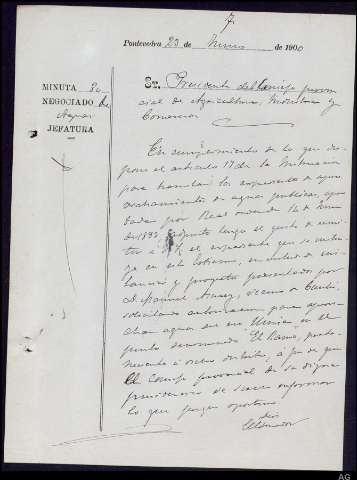 7
Pontevedra 23 de Enero de 1900
MINUTA
NEGOCIADO de
Aguas
JEFATURA
Sr. Presidente del Consejo provin
cial de Agricultura, Industria y
Comercio
En cumplimiento de lo que dis
pone el articulo 17 de la Instruccion
para tramitar los expedientes de apro
vechamientos de aguas publicas, apro
bada por Real orden de 14 de Junio
de 1883, adjunto tengo el gusto de remi
tir a V. el expediente que se instru
ye en este Gobierno, en virtud de ins
tancia y proyecto presentado por
D. Manuel vecino de
solicitando autorizacion para aprove
char aguas del rio Umia, en el
punto denominado
neciente a dicho distrito, a fin de que
el Consejo provincial de su digna
presidencia se sirva informar
lo que juzgue oportuno
Dios
El Gobernador
AG